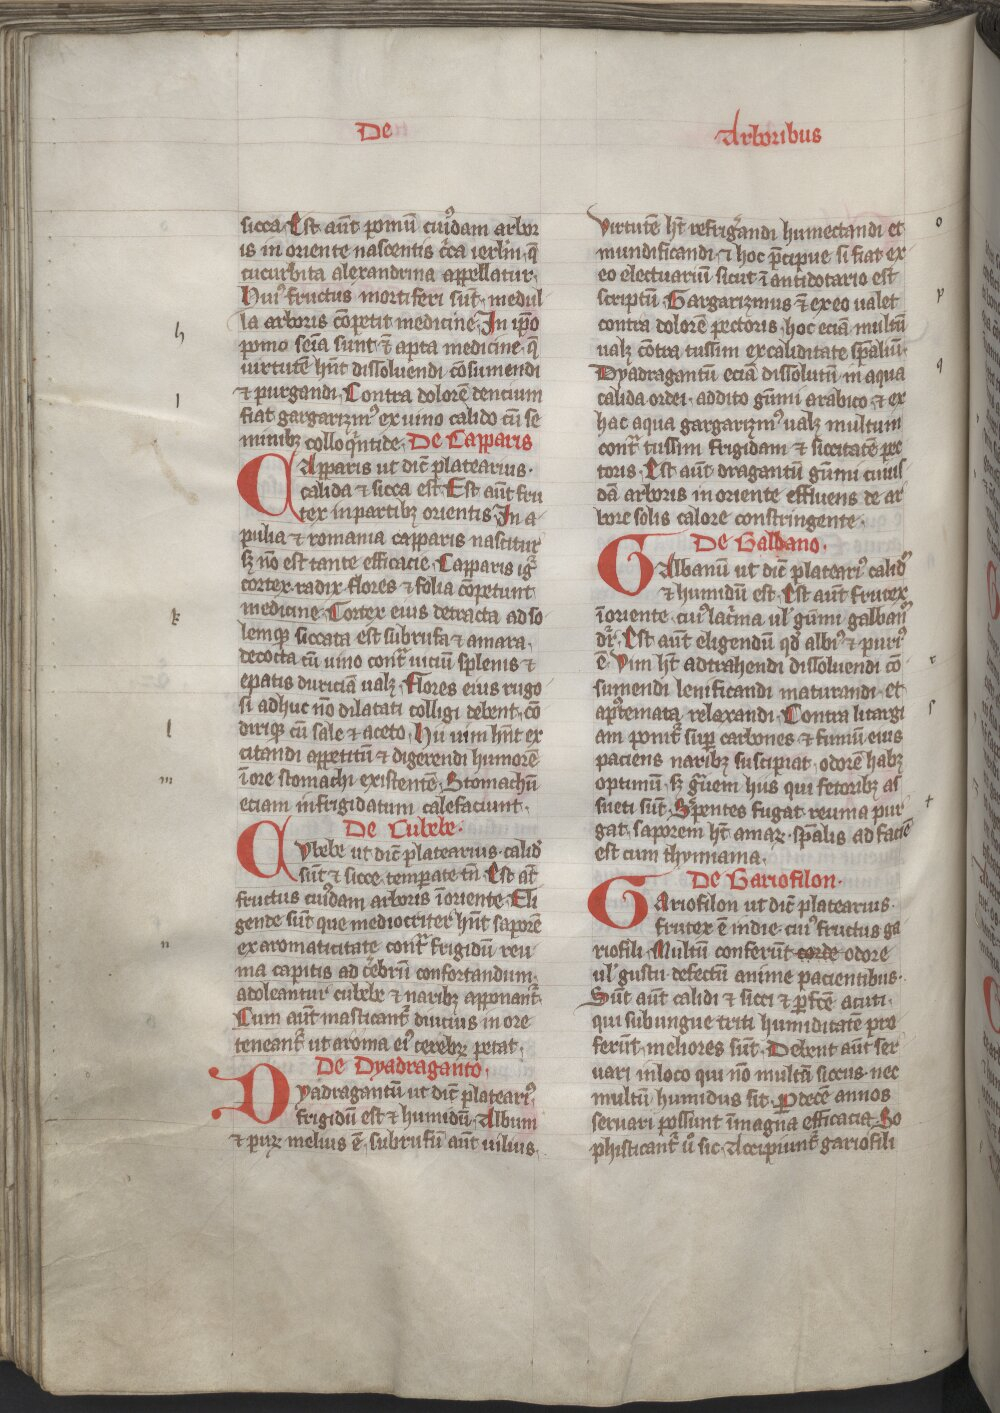 De
Arboribus
sicca. Est aūt pomū cuiꝰdam arbor
is in oriente nascentis c̄ca ierl̄m q̄
cucurbita alexandrina appellatur.
Huiꝰ fructus mortiferi sūt. medul
la arboris cōpetit medicine. In ip̄o
h
pomo seīa sunt ⁊ apta medicine. q̄
virtutē hn̄t dissoluendi cōsumendi
⁊ purgandi. Contra dolorē dencium
i
fiat gargarizmꝰ ex uino calido cū se
minibꝫ colloq̄ntide. De Capparis
Capparis ut dic̄ platearius.
calida ⁊ sicca est. Est aūt fru
tex in partibꝫ orientis. In a
pulia ⁊ romania capparis nascitur
sꝫ nō est tante efficacie. Capparis iḡ
cortex radix flores ⁊ folia cōpetunt
medicine. Cortex eius detracta ad so
k
lemqꝫ siccata est subrufa ⁊ amara.
decocta cū uino cont̄ uiciū splenis ⁊
epatis duriciā ualꝫ. Flores eius rugo
si adhuc nō dilatati colligi debent. cō
diriqꝫ cū sale ⁊ aceto. Hii uim hn̄t ex
l
citandi appetitū ⁊ digerendi humorē
ī ore stomachi existentē. Stomachū
m
eciam infrigidatum calefaciunt.
De Cubebe.
Cubebe ut dic̄ platearius. calid̄
sūt ⁊ sicce temperate tn̄. Est aūt
fructus cuiꝰdam arboris ī oriente. Eli
gende sūt que mediocriter hn̄t saporē
ex aromaticitate cont̄ frigidū reu
n
ma capitis ad cēbrū confortandum.
adoleantur cubebe ⁊ naribꝫ apponant̄.
Cum aūt masticant̄ diucius in ore
teneant̄ ut aroma eiꝰ cerebꝝ petat.
De Dyadraganto.
Dyadragantū ut dic̄ plateariꝰ.
frigidū est ⁊ humidū. Album
⁊ puꝝ melius ē. subrufū aūt uilius.
Virtutē ht̄ refriḡandi humectandi et
o
mundificandi. ⁊ hoc p̄cipue si fiat ex
eo electuariū sicut ī antidotario est
scriptū. Gargarizmus ē ex eo ualet
p
contra dolorē pectoris. hoc eciā multū
ualꝫ cōtra tussim ex caliditate sp̄aliū.
q
Dyadragantū eciā dissolutū in aqua
calida ordei. addito gūmi arabico ⁊ ex
hac aqua gargarizmꝰ ualꝫ multum
cont̄ tussim frigidam ⁊ siccitatē pec
toris. Est aūt dragantū gūmi cuius
dā arboris in oriente effluens de ar
bore solis calore constringente.
De Galbano.
Galbanū ut dic̄ plateariꝰ calidꝰ
⁊ humidū est. Est aūt frutex
ī oriente. cuiꝰ lac̄ma ul̓ gūmi galbanū
dr̄. Est aūt eligendū qd̄ albiꝰ ⁊ puriꝰ
ē. Vim ht̄ adtrahendi dissoluendi cō
r
sumendi lenificandi maturandi. et
apostemata relaxandi. Contra litargi
s
am ponit̄ suꝑ carbones ⁊ fumū eius
paciens naribꝫ suscipiat. odorē habꝫ
optimū. sꝫ ḡuem hiis qui fetoribꝫ as
sueti sūt. Sꝑpentes fugat reuma pur
t
gat. saporem ht̄ amaꝝ. sp̄alis ad faciē
est cum thymiama.
De Gariofilon.
Gariofilon ut dic̄ platearius.
frutex ē indie. cuiꝰ fructus ga
riofili. Multū conferūt corde odore
ul̓ gustu defectū anime pacientibus.
Sūt aūt calidi ⁊ sicci ⁊ ꝑfc̄e acuti.
qui sub ungue triti humiditatē pro
ferūt. meliores sūt. Debent aūt ser
uari in loco qui nō multū siccus nec
multū humidus sit. ꝑ decē annos
seruari possunt ī magna efficacia. So
phisticant̄ u̓o sic. Accipiunt̄ gariofili